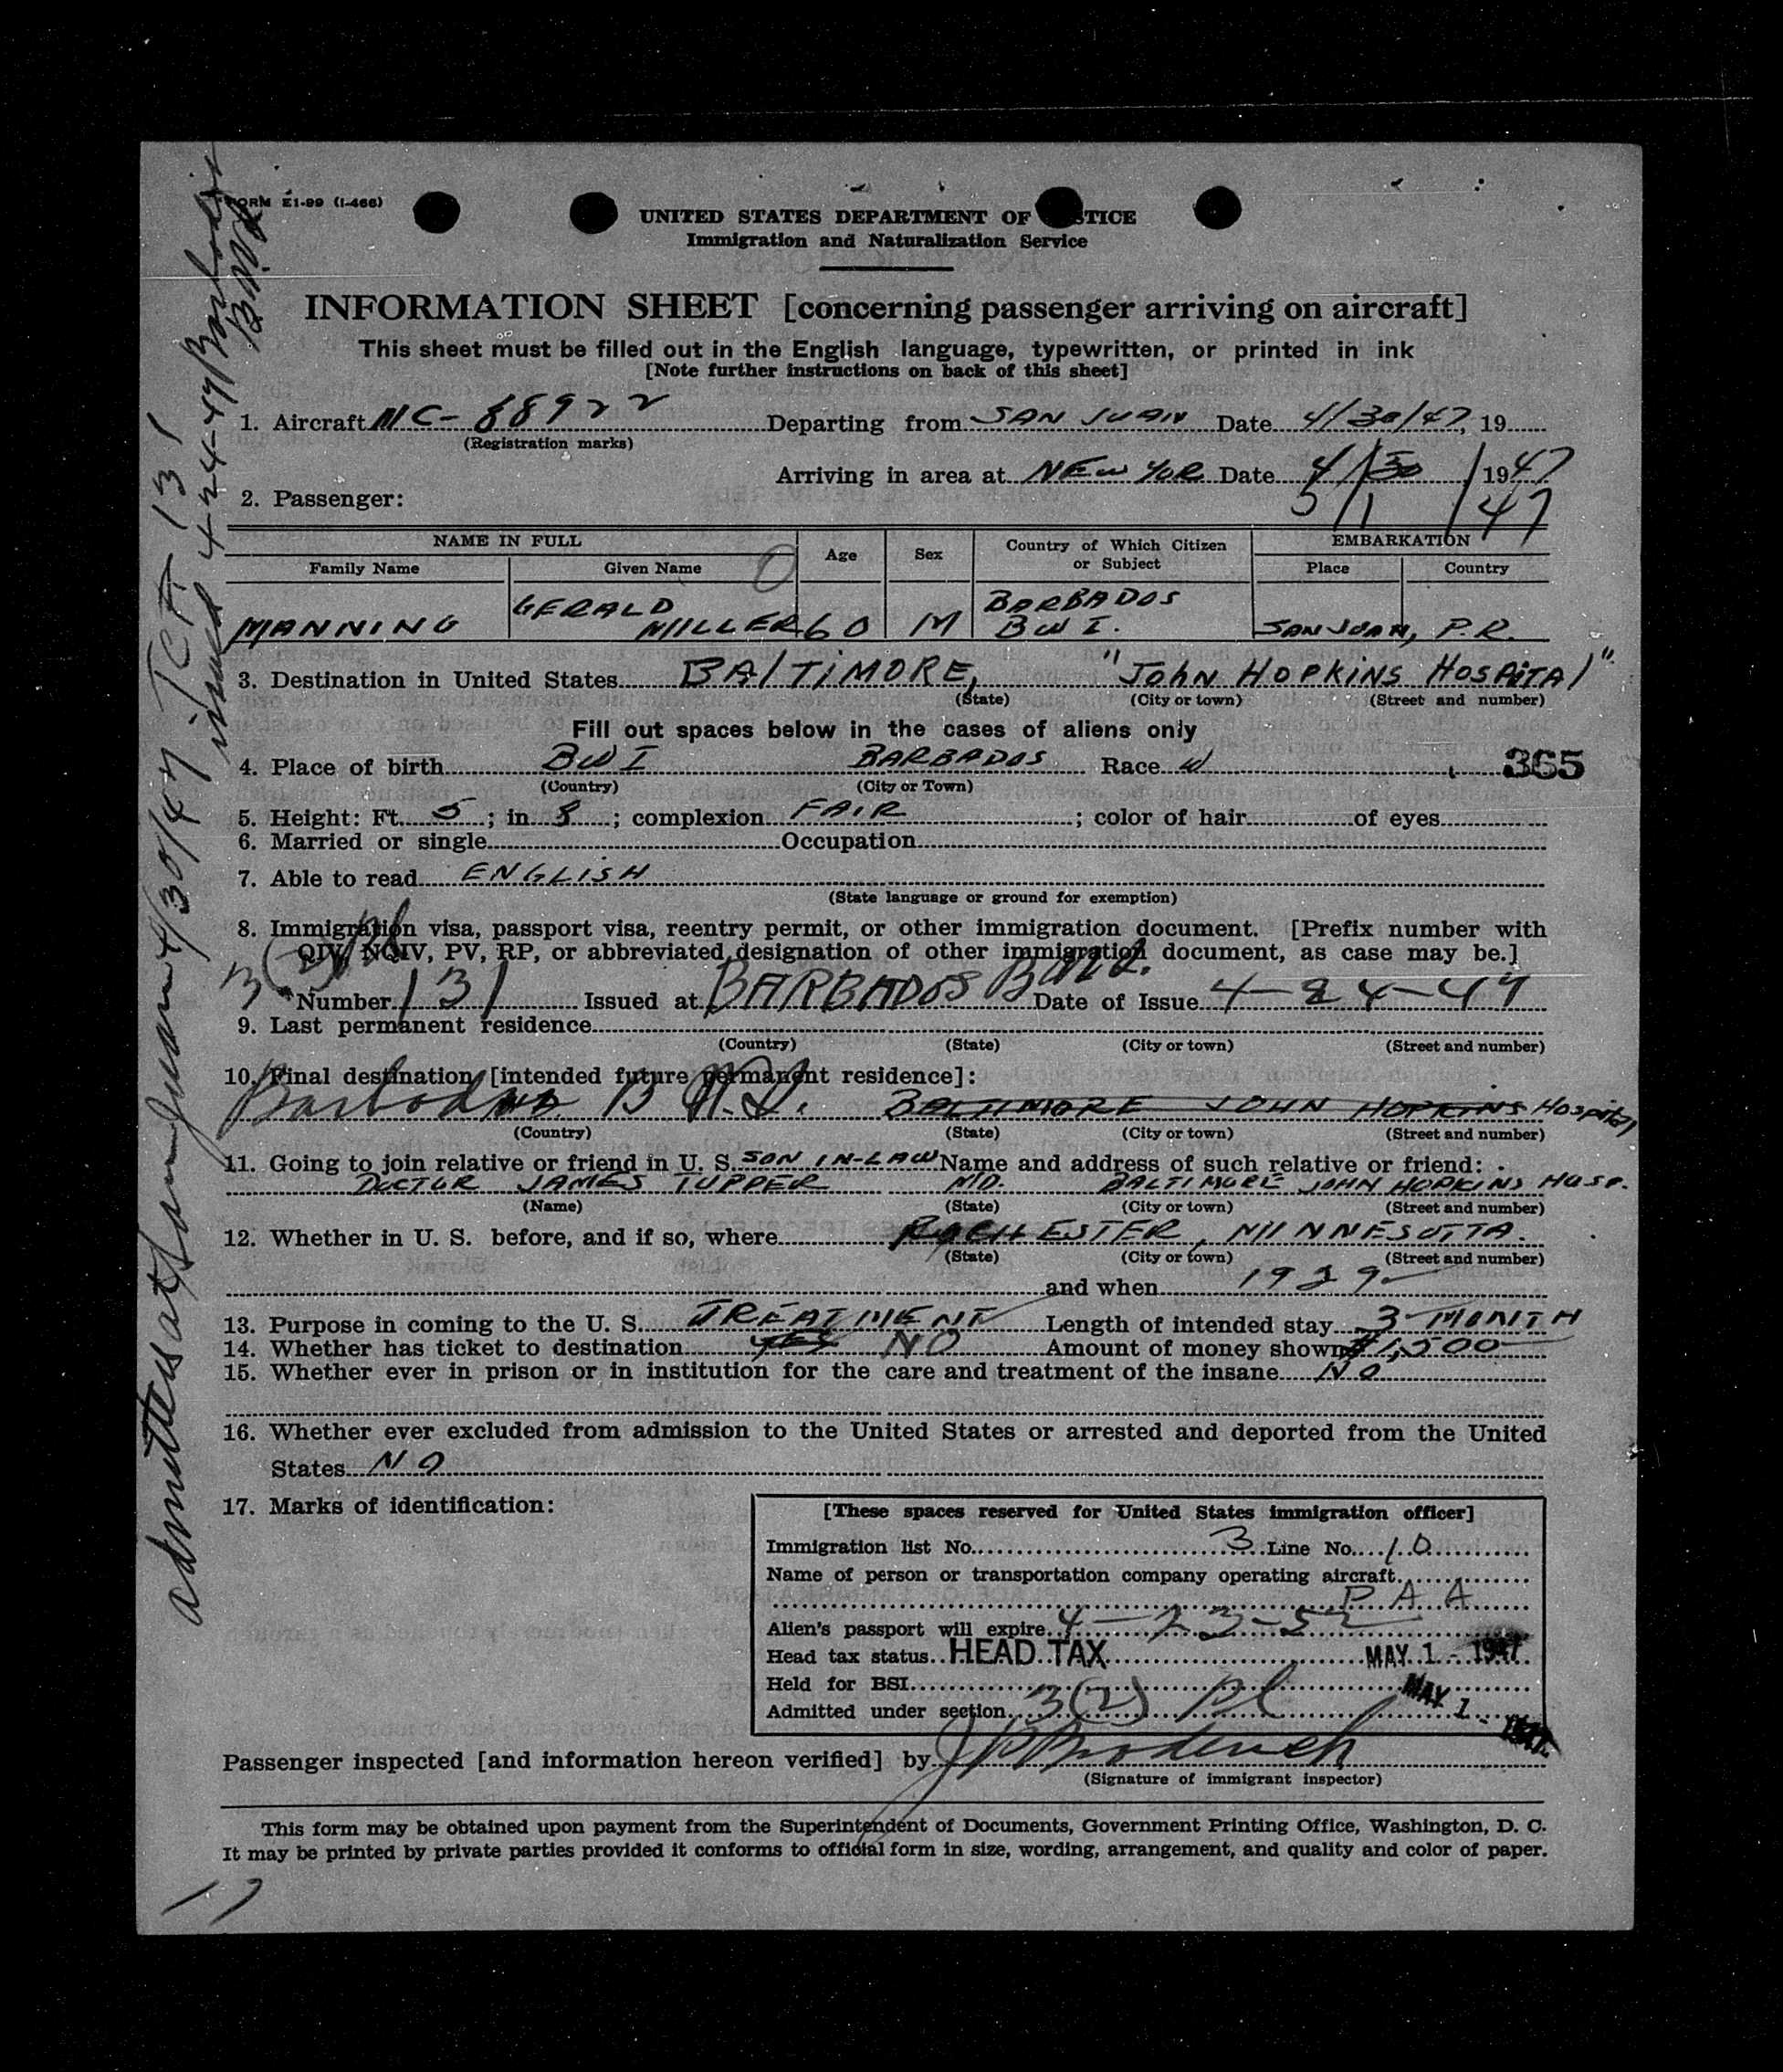 FORM E1-99 (I-466)
UNITED STATES DEPARTMENT OF STICE
Immigration and Naturalization Service
INFORMATION SHEET [concerning passenger arriving on aircraft]
This sheet must be filled out in the English language, typewritten, or printed in ink
[Note further instructions on back of this sheet]
1. Aircraft NC-88922 Departing from SAN JUAN Date 4/30/47, 19
(Registration marks)
Arriving in area at NEW YOR Date 4/30/1947
2. Passenger: 5/1/47
NAME IN FULL Age Sex Country of Which Citizen or Subject EMBARKATION
Family Name Given Name Place Country
0
MANNING GERALD MILLER 60 M BARBADOS BWI. SAN JUAN, P.R.
3. Destination in United States BALTIMORE, "JOHN HOPKINS HOSPITAL"
(State) (City or town) (Street and number)
Fill out spaces below in the cases of aliens only
4. Place of birth BWI BARBADOS Race W 365
(Country) (City or Town)
5. Height: Ft. 5; in 8; complexion FAIR; color of hair of eyes
6. Married or single Occupation
7. Able to read ENGLISH
(State language or ground for exemption)
8. Immigration visa, passport visa, reentry permit, or other immigration document. [Prefix number with
QIV, NQIV, PV, RP, or abbreviated designation of other immigration document, as case may be.]
3(2) Number 131 Issued at BARBADOS B.W.I. Date of Issue 4-24-47
9. Last permanent residence
(Country) (State) (City or town) (Street and number)
10. Final destination [intended future permanent residence]:
Barbados B.W.I. BALTIMORE JOHN HOPKINS Hospital
(Country) (State) (City or town) (Street and number)
11. Going to join relative or friend in U. S. SON IN-LAW Name and address of such relative or friend:
DOCTOR JAMES TUPPER MD. BALTIMORE JOHN HOPKINS HOSP.
(Name) (State) (City or town) (Street and number)
12. Whether in U. S. before, and if so, where ROCHESTER, MINNESOTTA.
(State) (City or town) (Street and number)
and when 1929
13. Purpose in coming to the U. S. TREATMENT Length of intended stay 3-MONTH
14. Whether has ticket to destination YES NO Amount of money shown $1,500
15. Whether ever in prison or in institution for the care and treatment of the insane NO
16. Whether ever excluded from admission to the United States or arrested and deported from the United
States NO
17. Marks of identification:
[These spaces reserved for United States immigration officer]
Immigration list No. 3 Line No. 10
Name of person or transportation company operating aircraft
P A A
Alien's passport will expire 4-23-52
Head tax status HEAD TAX MAY 1 - 1947
Held for BSI
Admitted under section 3(2) MAY 1 - 1947
Passenger inspected [and information hereon verified] by
(Signature of immigrant inspector)
This form may be obtained upon payment from the Superintendent of Documents, Government Printing Office, Washington, D. C.
It may be printed by private parties provided it conforms to official form in size, wording, arrangement, and quality and color of paper.
17
admitted at San Juan 4/30/47 TCA 131
issued 4-24-47 Barbados
B.W.I.